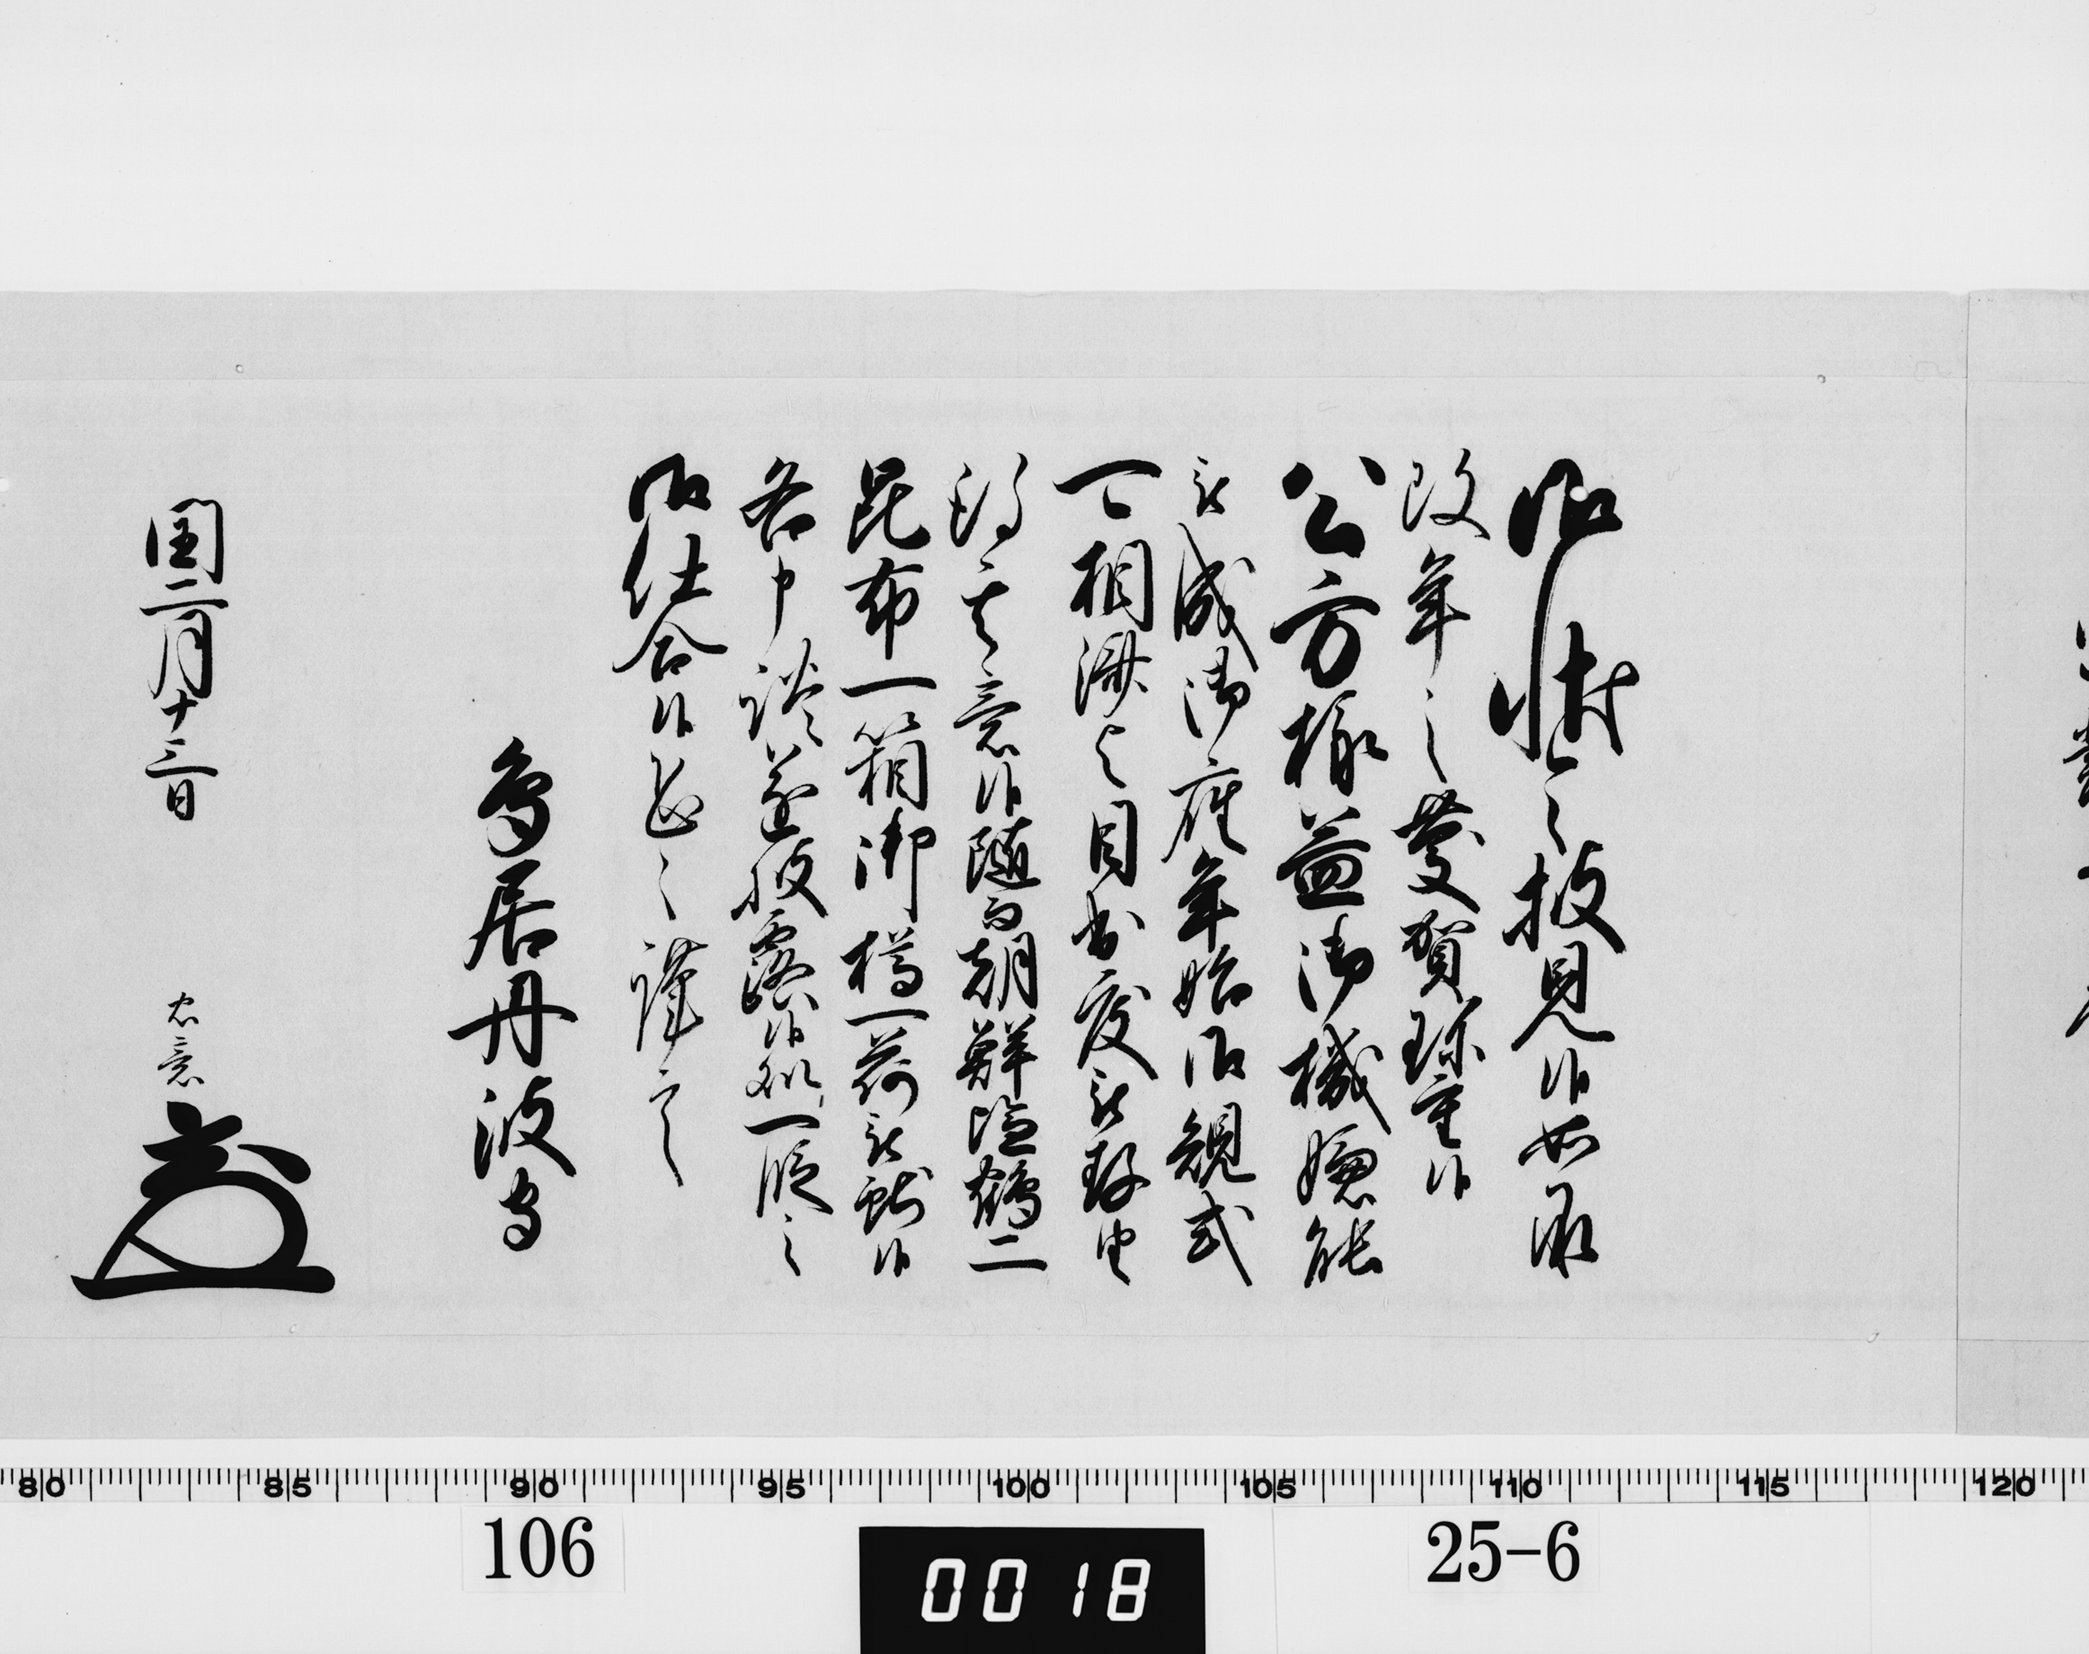 御状令披見候如承
改年之慶賀珍重候
公方様益御機嫌能
被成御座年始御規式
相済目出度被存由
得其意候随而朝鮮塩鶴二
昆布一箱御樽一荷被献候
各申談遂披露候処一段之
御仕合候恐々謹言
鳥居丹波守
閏二月十三日 忠意
80 85 90 95 100 105 110 115 120
106 0018 25-6